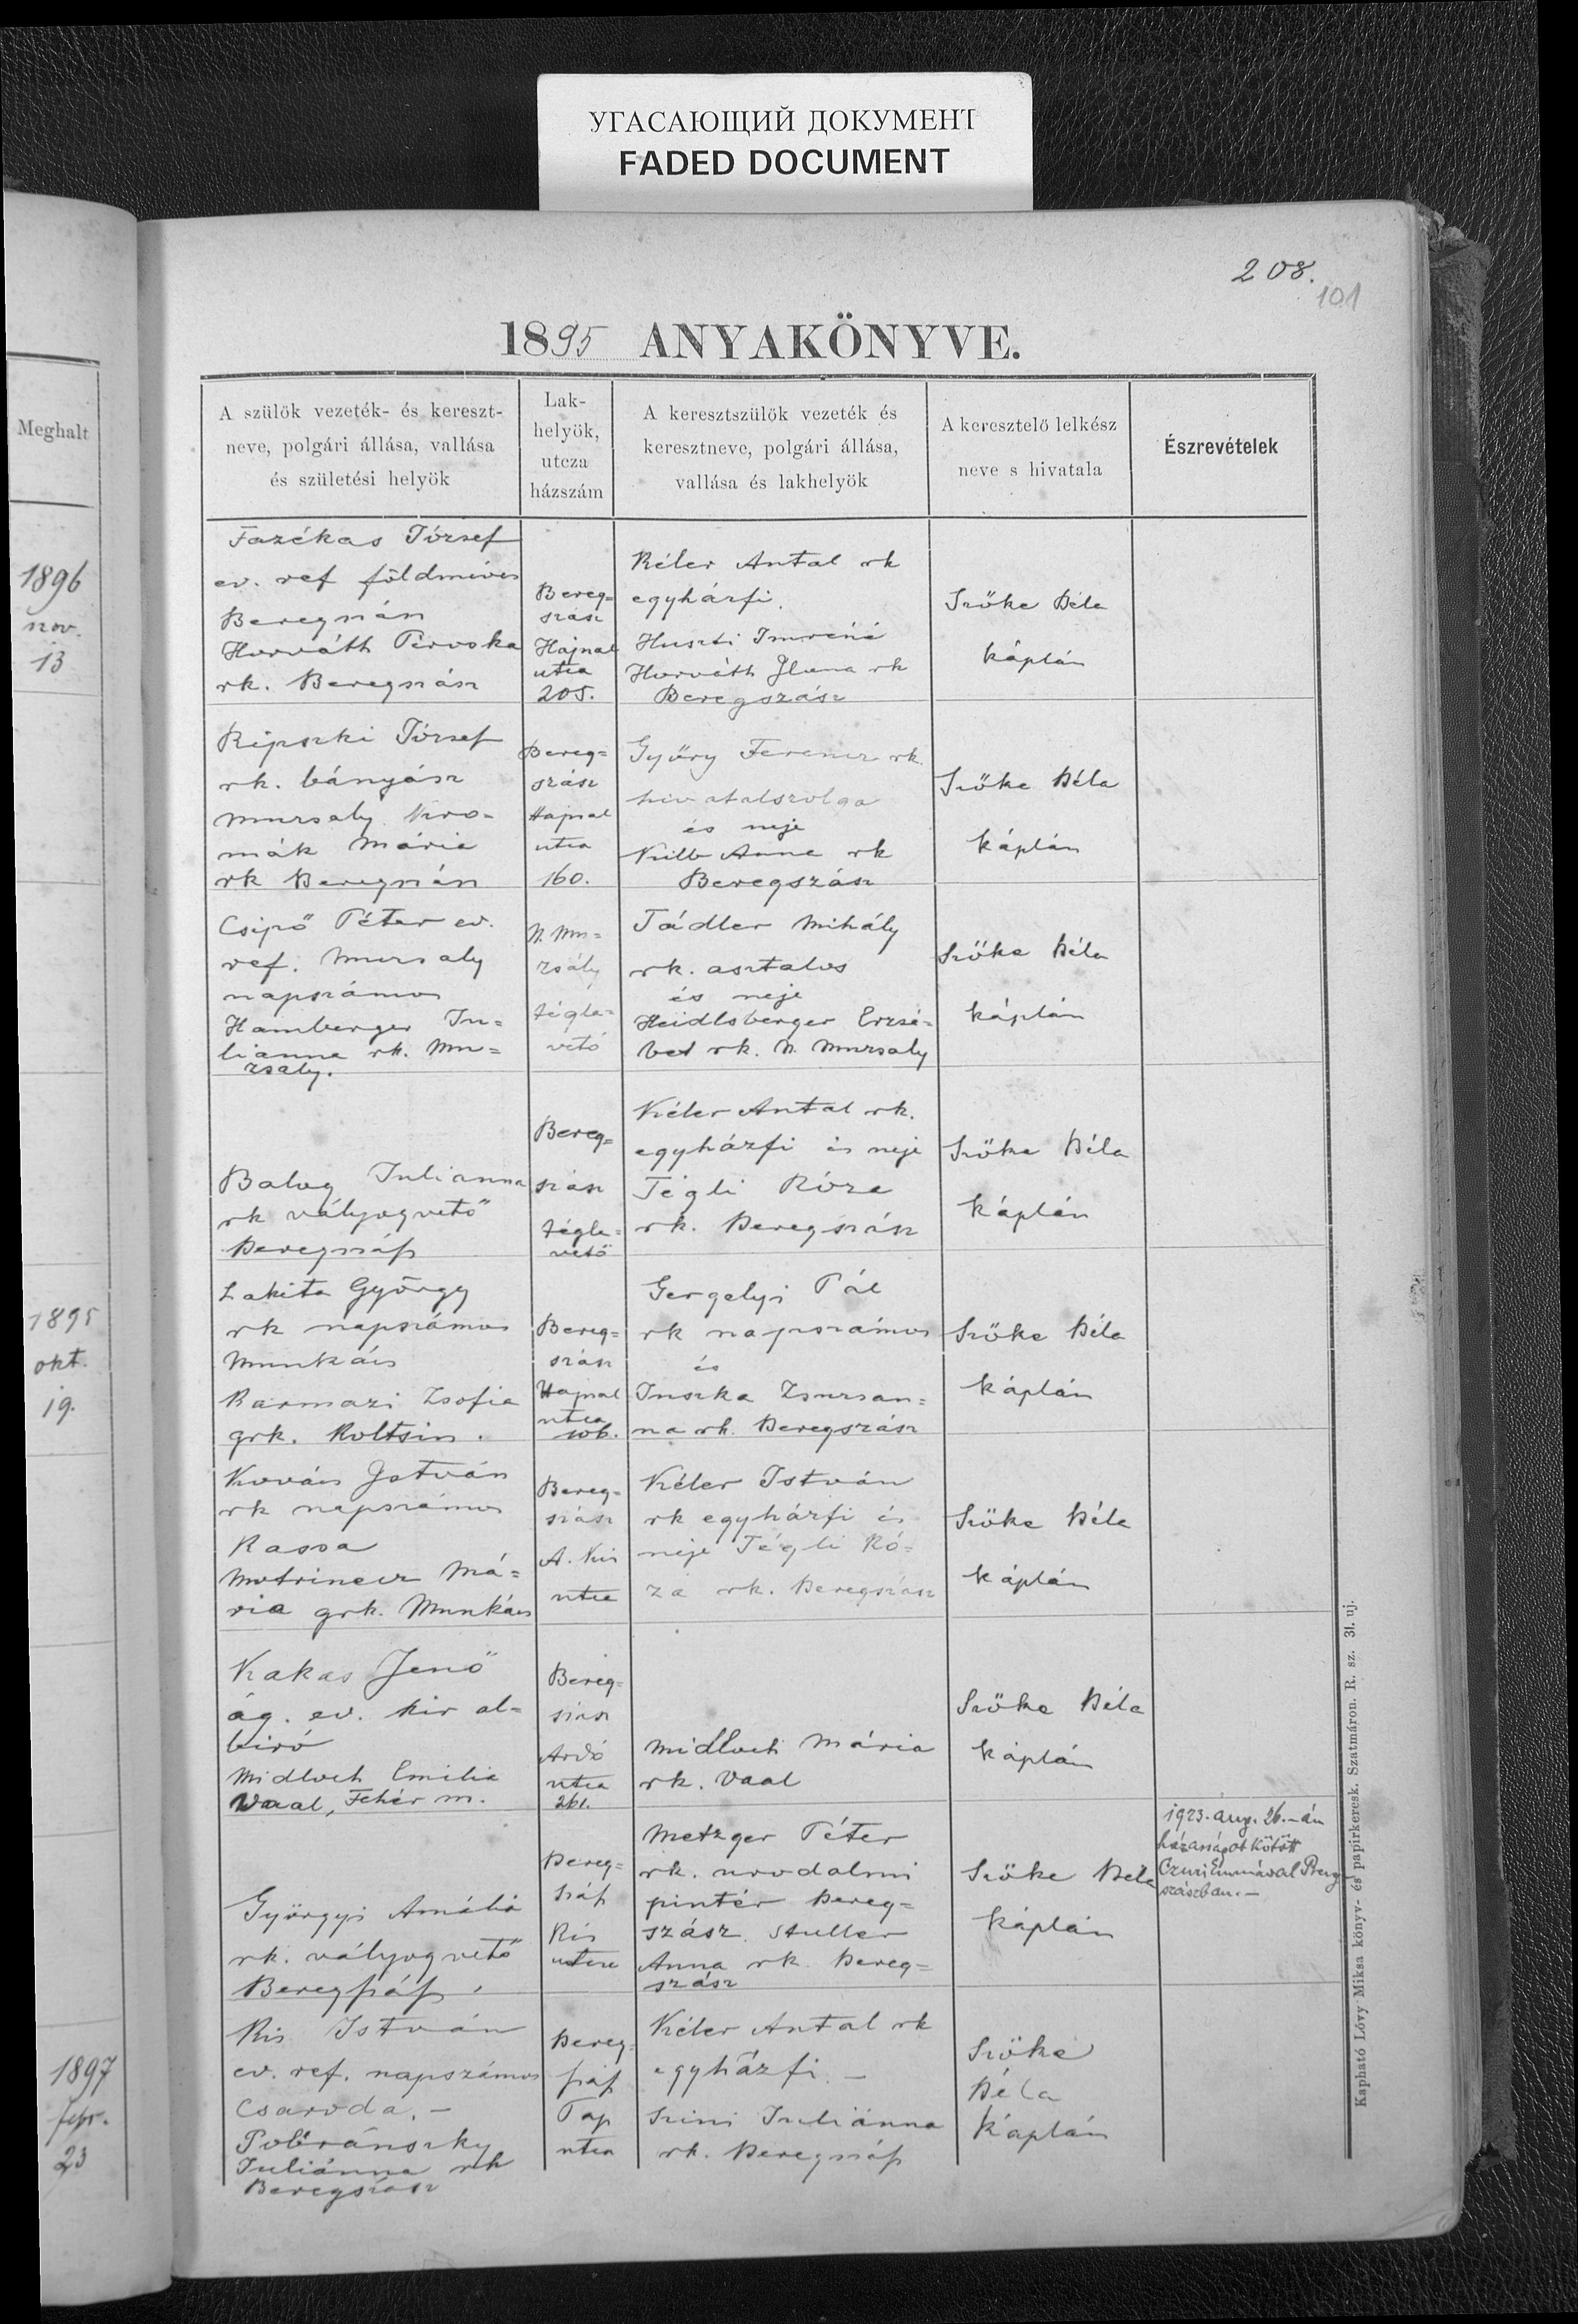 УГАСАЮЩИЙ ДОКУМЕНТ
FADED DOCUMENT
208.
101
1895 ANYAKÖNYVE.
Meghalt
1896
nov.
13
1895
okt.
19.
1897
febr.
23
A szülők vezeték- és kereszt-
neve, polgári állása, vallása
és születési helyök
Lak-
helyök,
utcza
házszám
A keresztszülők vezeték és
keresztneve, polgári állása,
vallása és lakhelyök
A keresztelő lelkész
neve s hivatala
Észrevételek
Fazékas József
ev. ref földmives
Beregszász
Horváth Piroska
rk. Beregszász
Bereg=
szász
Hajnal
utca
205.
Kéler Antal rk
egyházfi.
Huszti Imréné
Horváth Ilona rk
Beregszász
Szőke Béla
káplán
Ripszki József
rk. bányász
Muzsaly Kro-
mák Mária
rk Beregszász
Bereg=
szász
Hajnal
utca
160.
Győry Ferencz rk.
hivatalszolga
és neje
Anna rk
Beregszász
Szőke Béla
káplán
Csipő Péter ev.
ref. Muzsaly
napszámos
Hamberger Ju=
lianna rk. Mu=
zsaly.
N. Mu=
zsály
tégla=
vető
Tádler Mihály
rk. asztalos
és neje
Heidlsberger Erzsé=
bet rk. N. Muzsaly
Szőke Béla
káplán
Balog Julianna
rk vályogvető
Beregszász
Bereg=
szász
tégla=
vető
Kéler Antal rk.
egyházfi és neje
Tégli Róza
rk. Beregszász
Szőke Béla
káplán
Lakita György
rk napszámos
Munkács
Karmazi Zsofia
grk. Holtsin.
Bereg=
szász
Hajnal
utca
106.
Gergelyi Pál
rk napszámos
és
Juszka Zsuzsan=
na rk. Beregszász
Szőke Béla
káplán
Kovács István
rk napszámos
Kassa
Motrinecz Má=
ria grk. Munkács
Bereg=
szász
A. Kis
utca
Kéler István
rk egyházfi és
neje Tégli Ró=
za rk. Beregszász
Szőke Béla
káplán
Kakas Jenő
ág. ev. kir al=
biró
Midloch Emilia
Vaal, Fehér m.
Bereg=
szász
Ardó
utca
261.
Midloch Mária
rk. Vaal
Szőke Béla
káplán
Györgyi Amália
rk. vályogvető
Beregszász.
Bereg=
szász
Kis
utcza
Metzger Péter
rk. urodalmi
pintér Bereg=
szász. Stuller
Anna rk. Bereg=
szász
Szőke Béla
káplán
1923. aug. 26.-án
házasságot kötött
Czuri Emmával Bereg-
szászban.-
Kis István
ev. ref. napszámos
Csaroda.-
Pobránszky
Juliánna rk
Beregszász
Bereg=
szász
Pap
utca
Kéler Antal rk
egyházfi.-
Szini Juliánna
rk. Beregszász
Szőke
Béla
Káplán
Kapható Lővy Miksa könyv- és papirkeresk. Szatmáron. R. sz. 31. uj.